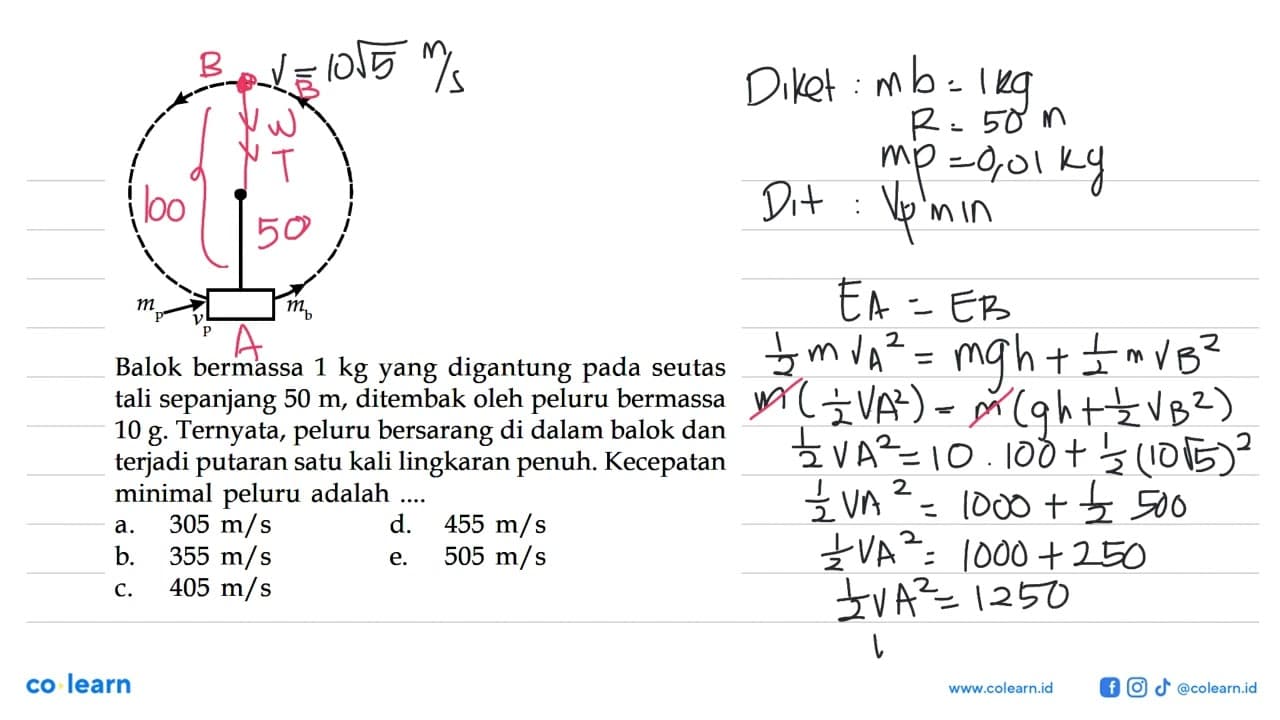 B V = 10√5 m/s
B
W
T
100
50
m_p v_p m_b
A
Balok bermassa 1 kg yang digantung pada seutas
tali sepanjang 50 m, ditembak oleh peluru bermassa
10 g. Ternyata, peluru bersarang di dalam balok dan
terjadi putaran satu kali lingkaran penuh. Kecepatan
minimal peluru adalah ....
a. 305 m/s d. 455 m/s
b. 355 m/s e. 505 m/s
c. 405 m/s
Diket : mb = 1 kg
R = 50 m
mp = 0,01 kg
Dit : Vp min
EA = EB
1/2 m VA² = mgh + 1/2 m VB²
m(1/2 VA²) = m(gh + 1/2 VB²)
1/2 VA² = 10 . 100 + 1/2 (10√5)²
1/2 VA² = 1000 + 1/2 500
1/2 VA² = 1000 + 250
1/2 VA² = 1250
co learn
www.colearn.id @colearn.id